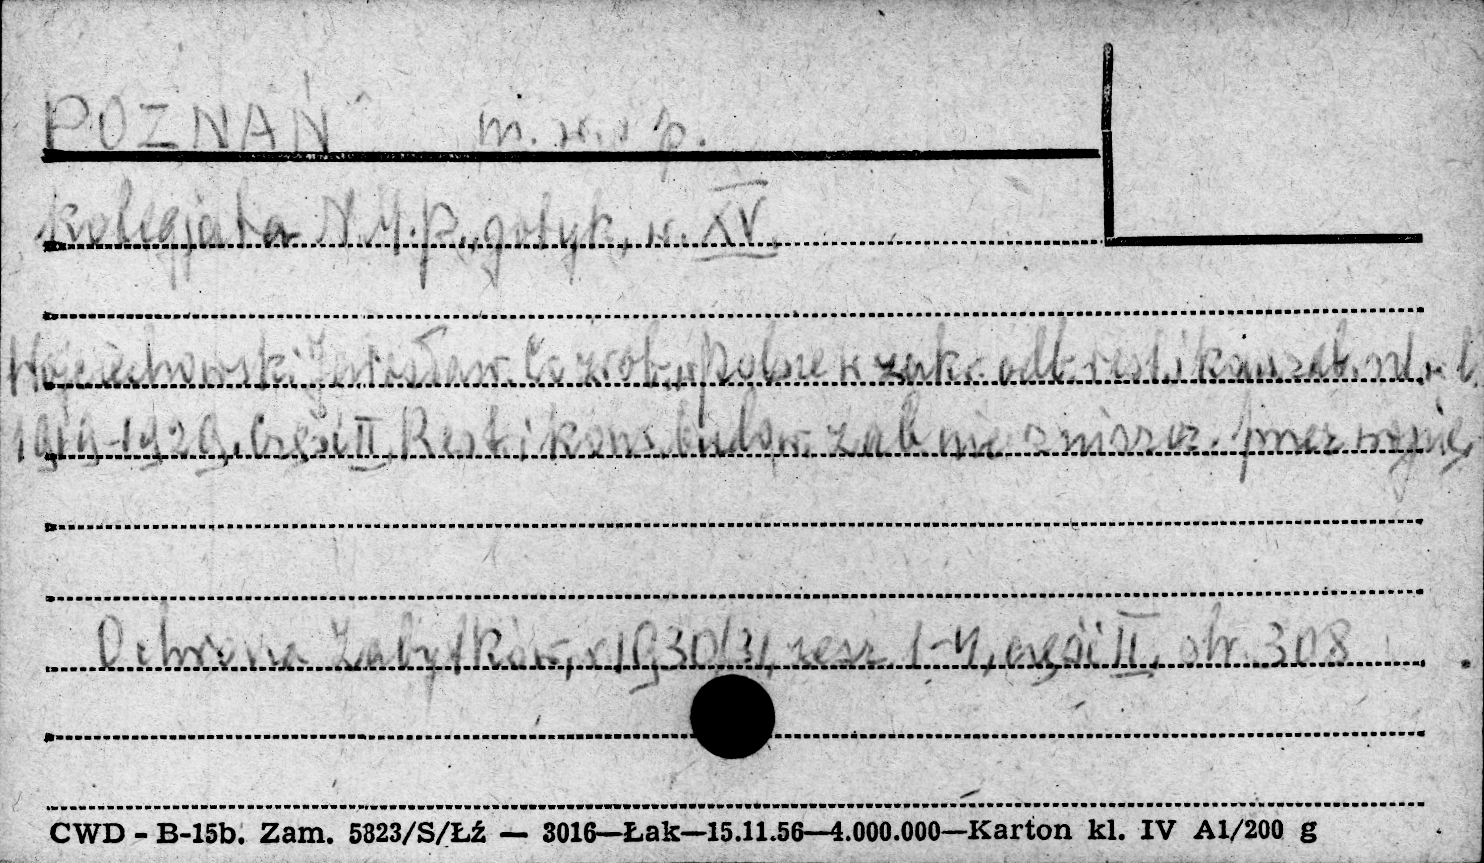 POZNAŃ m. w. i p.
Kolegjata N.M.P., gotyk, w. XV.
Wojciechowski Jarosław. Co zrob. w Polsce w zakr. odb. rest. i kons. zab. nt. w l.
1919-1929. Część II. Rest. i kons. budow. zab. nie zniszcz. przez wojnę,
Ochrona Zabytków, r 1930/31, zesz. 1-4, część II, str. 308
CWD - B-15b. Zam. 5823/S/Łź — 3016—Łak—15.11.56—4.000.000—Karton kl. IV A1/200 g